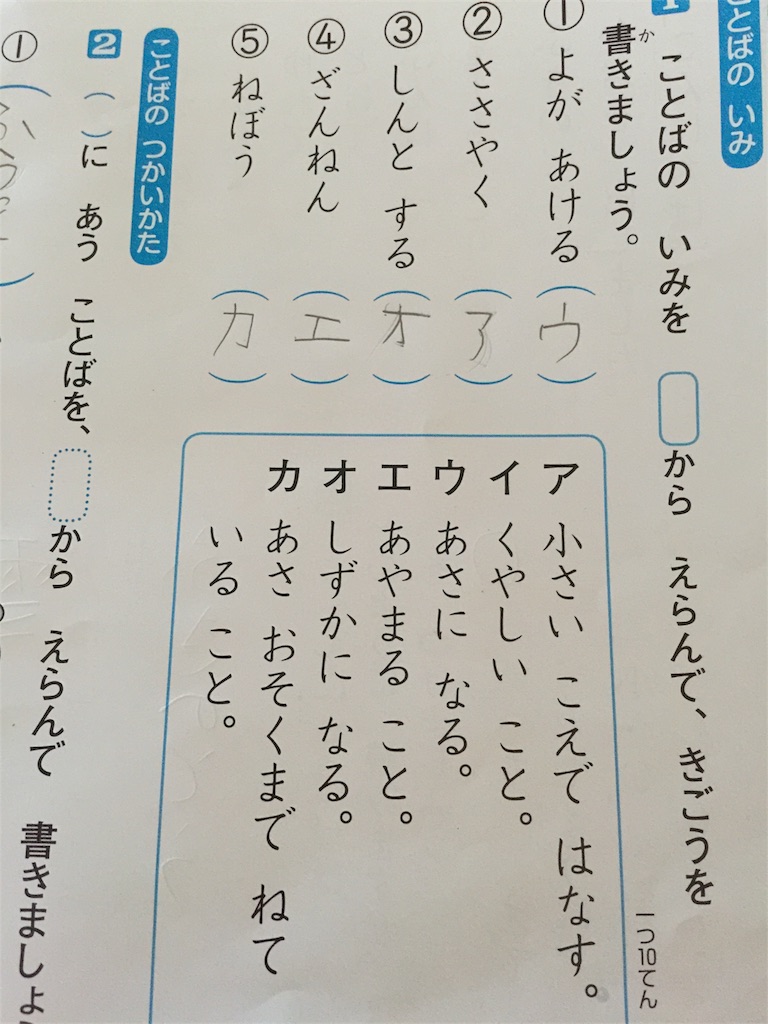 ことばの いみ
1 ことばの いみを から えらんで、きごうを
書きましょう。
か
一つ10てん
① よが あける（ウ）
② ささやく（ア）
③ しんと する（オ）
④ ざんねん（エ）
⑤ ねぼう（カ）
ア 小さい こえで はなす。
イ くやしい こと。
ウ あさに なる。
エ あやまる こと。
オ しずかに なる。
カ あさ おそくまで ねて
いる こと。
ことばの つかいかた
2 （ ）に あう ことばを、 から えらんで 書きましょ
①